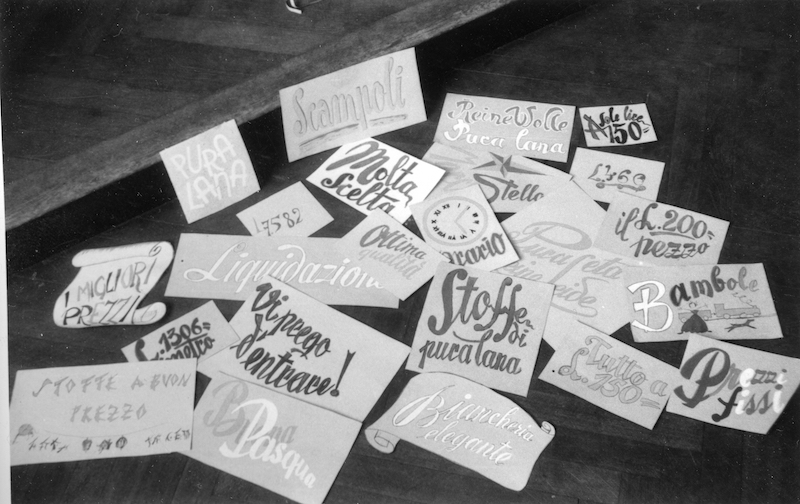 Scampoli
Reine Wolle
Pura lana
A sole lire
150=
PURA
LANA
Molta
scelta
Stella
L 460
L 75'82
Ottima
qualità
orario
il L. 200=
pezzo
Liquidazioni
Pura seta
I MIGLIORI
PREZZI
Bambole
L. 1306=
il metro
Vi prego
d'entrare!
Stoffe
di
pura lana
Tutto a
L. 750=
Prezzi
fissi
STOFFE A BUON
PREZZO
Buona
Pasqua
Biancheria
elegante